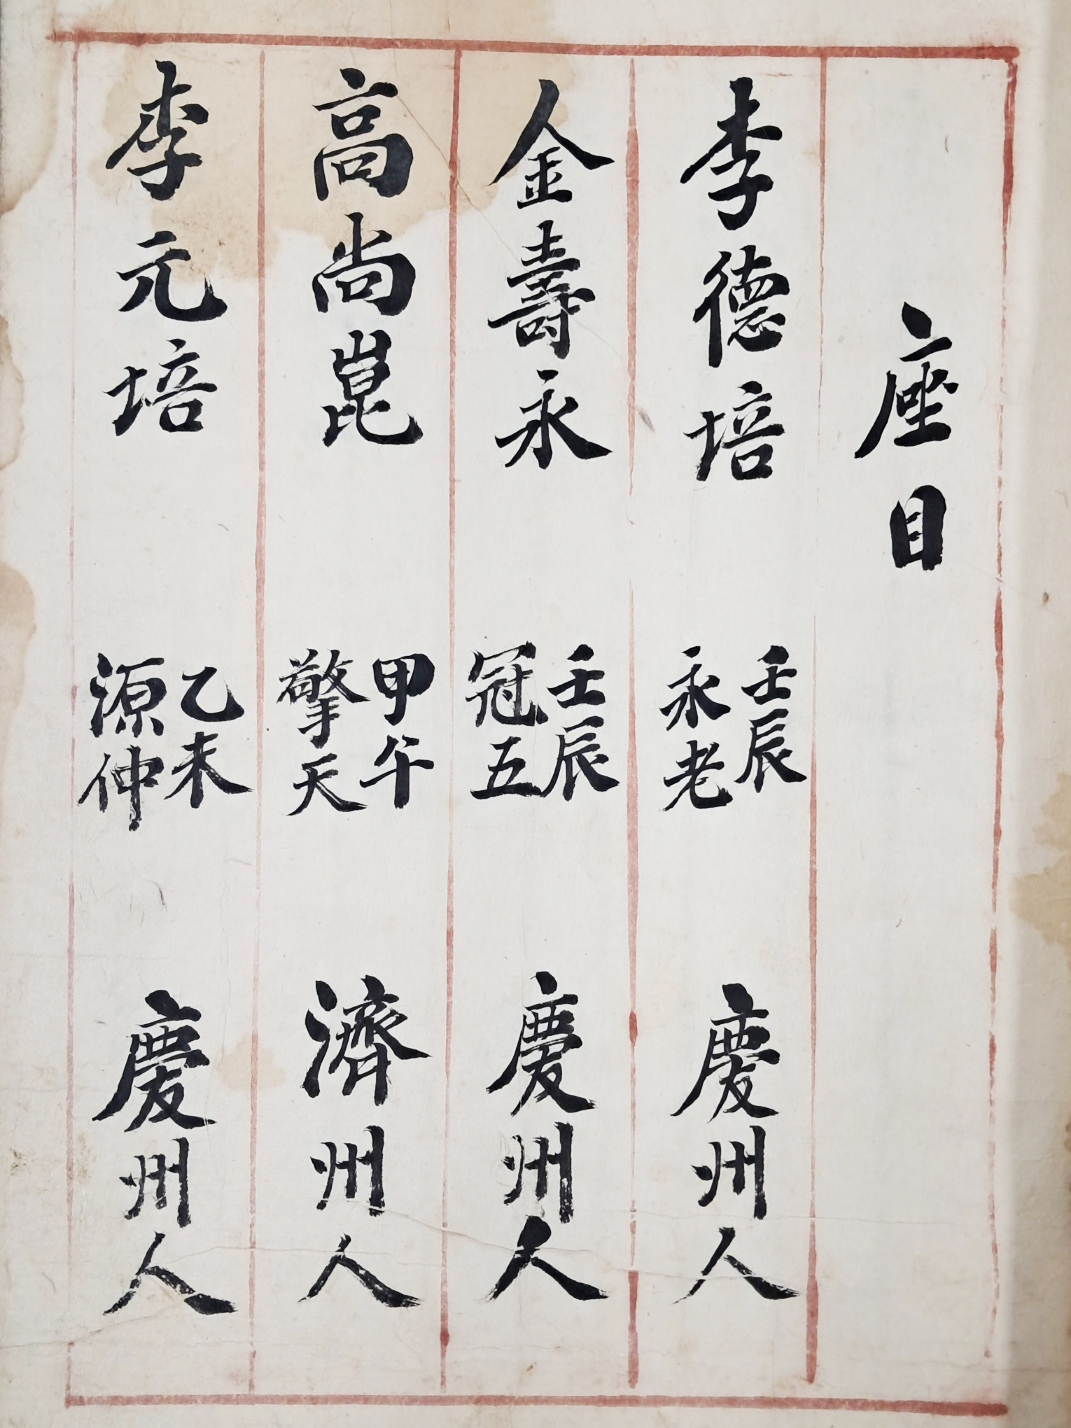 座目
李德培 壬辰 永老 慶州人
金壽永 壬辰 冠五 慶州人
高尚崑 甲午 擎天 濟州人
李元培 乙未 源仲 慶州人